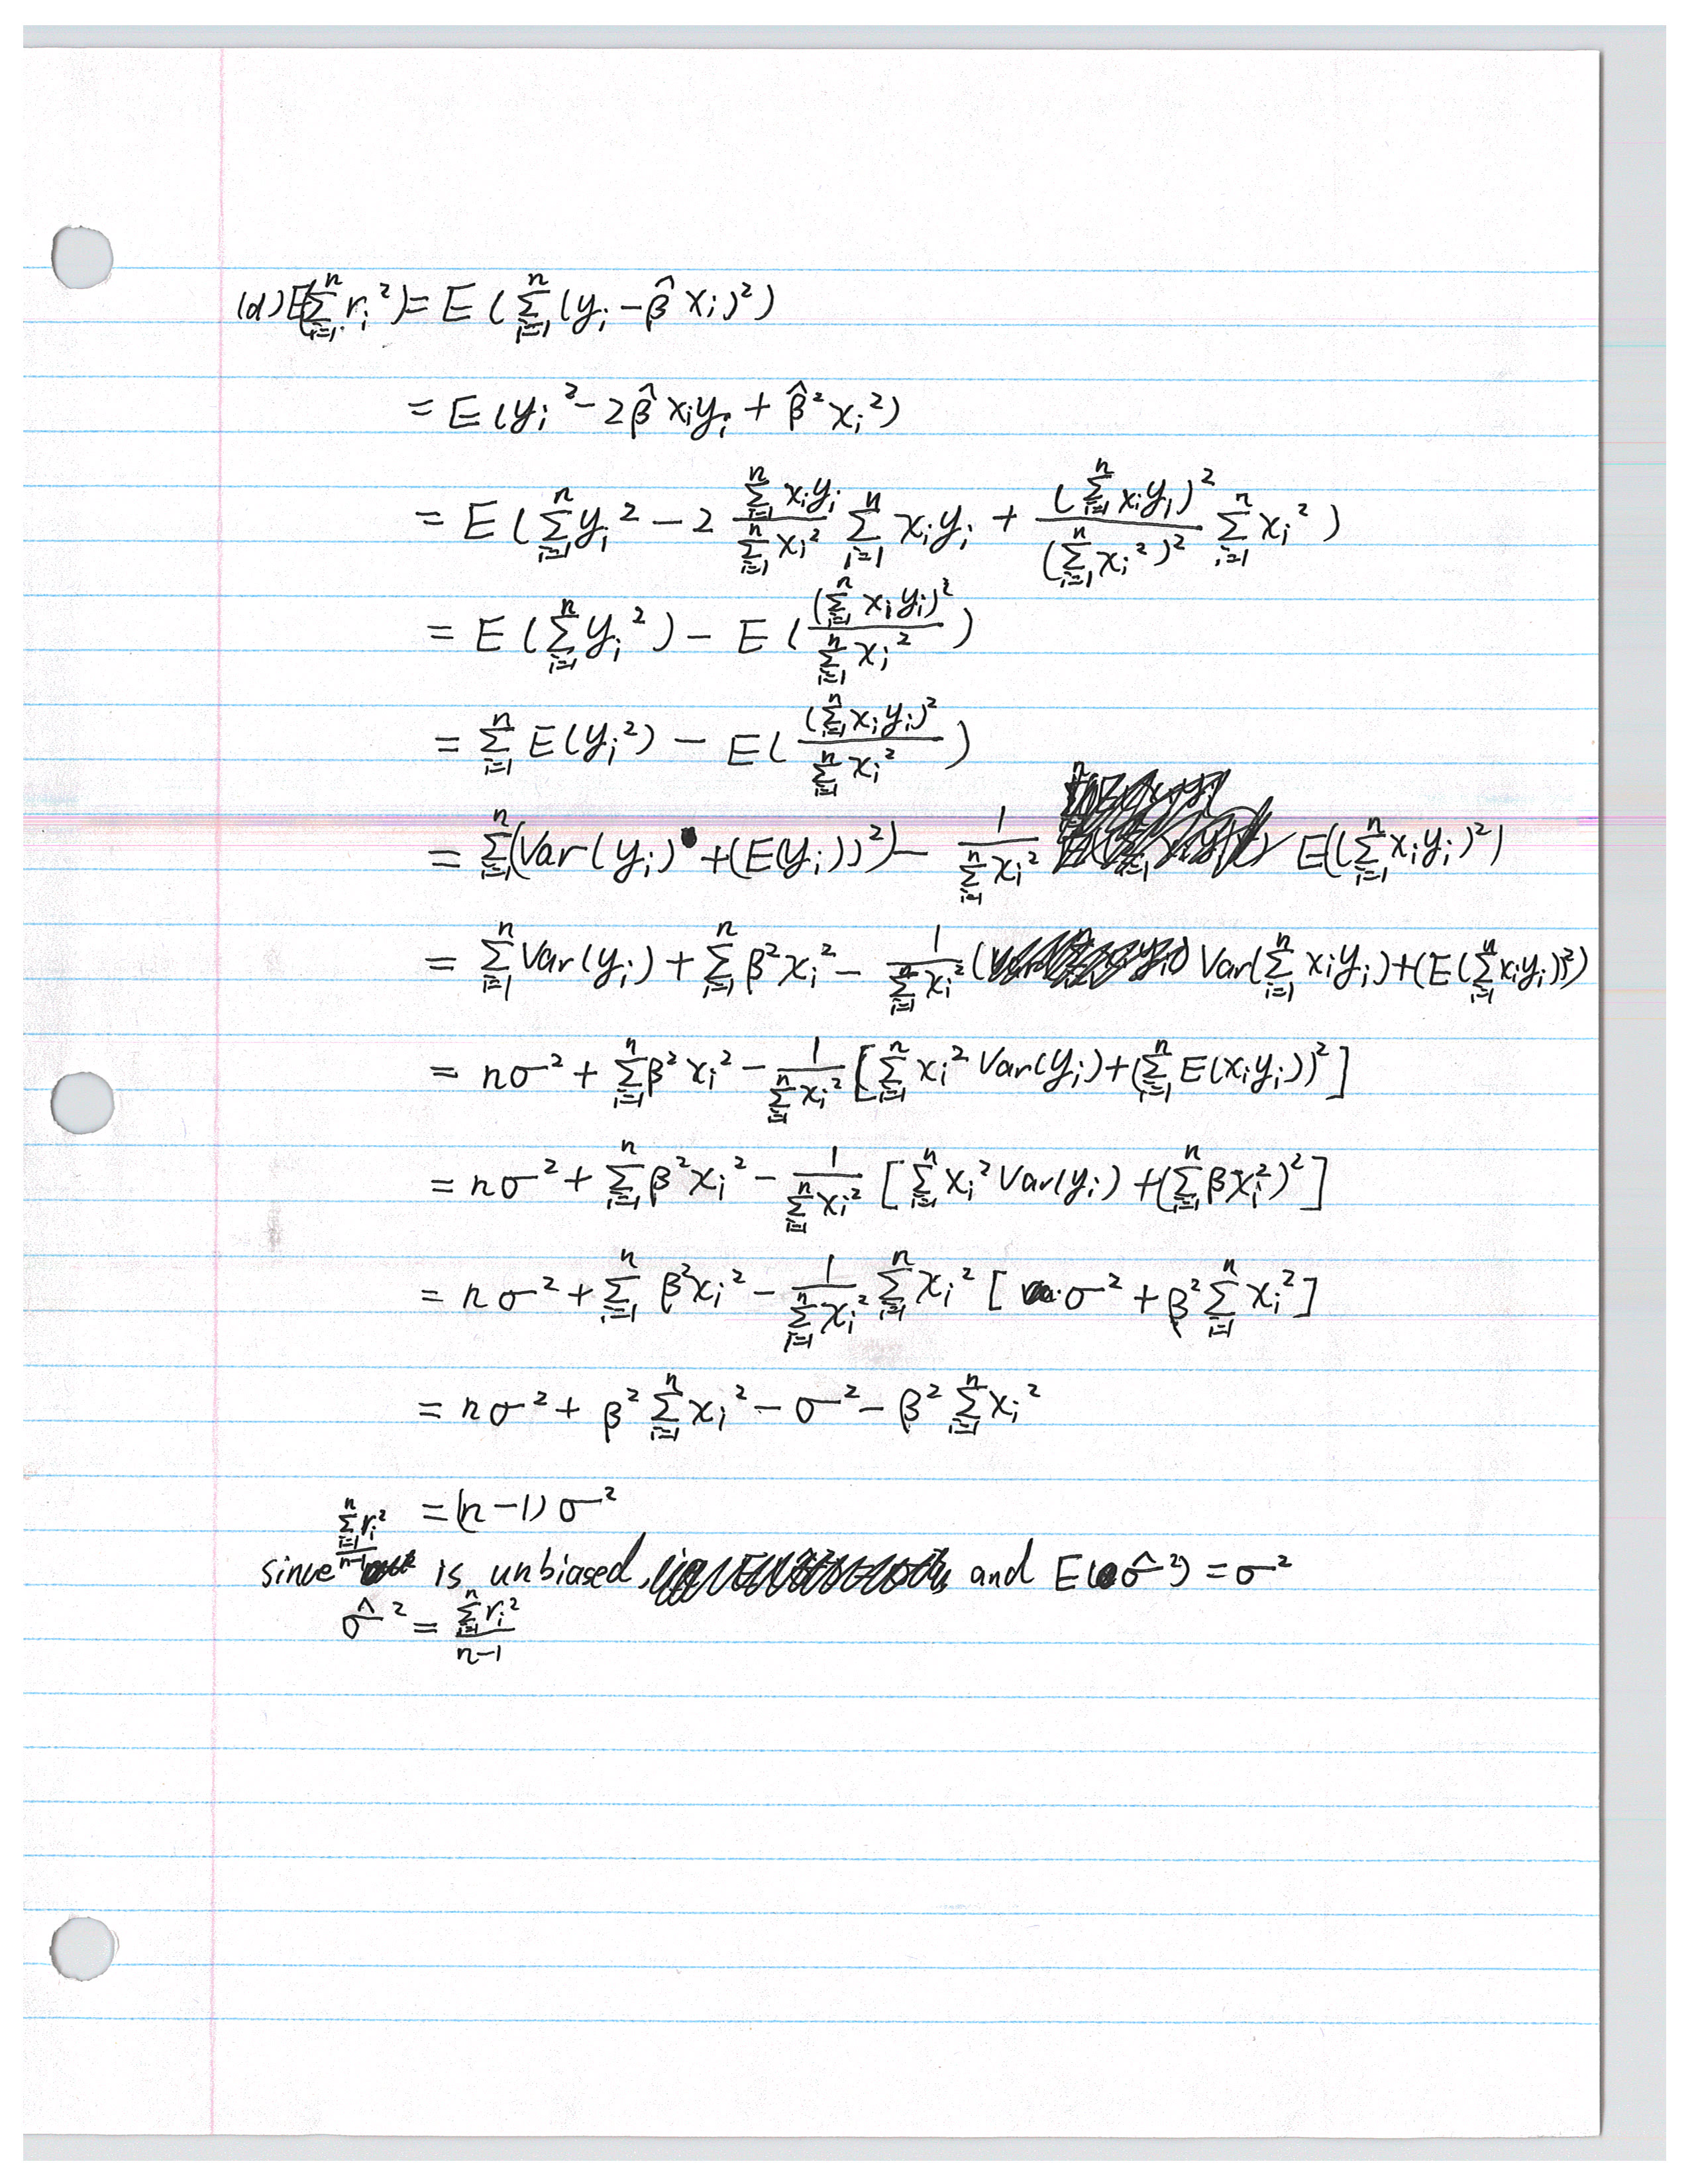 (d) E(∑_{i=1}^{n} r_i²) = E(∑_{i=1}^{n} (y_i − β̂ x_i)²)
= E(y_i² − 2β̂ x_i y_i + β̂² x_i²)
= E(∑_{i=1}^{n} y_i² − 2 (∑_{i=1}^{n} x_i y_i)/(∑_{i=1}^{n} x_i²) ∑_{i=1}^{n} x_i y_i + (∑_{i=1}^{n} x_i y_i)²/(∑_{i=1}^{n} x_i²)² ∑_{i=1}^{n} x_i²)
= E(∑_{i=1}^{n} y_i²) − E((∑_{i=1}^{n} x_i y_i)²/∑_{i=1}^{n} x_i²)
= ∑_{i=1}^{n} E(y_i²) − E((∑_{i=1}^{n} x_i y_i)²/∑_{i=1}^{n} x_i²)
= ∑_{i=1}^{n} (Var(y_i) + (E(y_i))²) − 1/(∑_{i=1}^{n} x_i²) E((∑_{i=1}^{n} x_i y_i)²)
= ∑_{i=1}^{n} Var(y_i) + ∑_{i=1}^{n} β² x_i² − 1/(∑_{i=1}^{n} x_i²) (Var(∑_{i=1}^{n} x_i y_i) + (E(∑_{i=1}^{n} x_i y_i))²)
= nσ² + ∑_{i=1}^{n} β² x_i² − 1/(∑_{i=1}^{n} x_i²) [∑_{i=1}^{n} x_i² Var(y_i) + (∑_{i=1}^{n} E(x_i y_i))²]
= nσ² + ∑_{i=1}^{n} β² x_i² − 1/(∑_{i=1}^{n} x_i²) [∑_{i=1}^{n} x_i² Var(y_i) + (∑_{i=1}^{n} β x_i²)²]
= nσ² + ∑_{i=1}^{n} β² x_i² − 1/(∑_{i=1}^{n} x_i²) ∑_{i=1}^{n} x_i² [σ² + β² ∑_{i=1}^{n} x_i²]
= nσ² + β² ∑_{i=1}^{n} x_i² − σ² − β² ∑_{i=1}^{n} x_i²
= (n−1)σ²
since (∑_{i=1}^{n} r_i²)/(n−1) is unbiased, and E(σ̂²) = σ²
σ̂² = (∑_{i=1}^{n} r_i²)/(n−1)